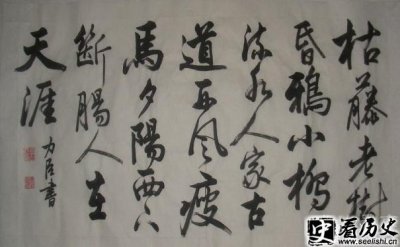 枯藤老樹
昏鴉小橋
流水人家古
道西風瘦
馬夕陽西下
斷腸人在
天涯
書
看历史
www.seelishi.cn